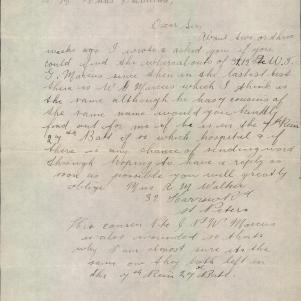 Dear Sir,
About two or three
weeks ago I wrote & asked you if you
could find the whereabouts of 3213 Pte W. S.
G. Marcus since then in the lastest list
there is W. G. Marcus which I think is
the same although he has cousins of
the same name would you kindly
find out for me if he is in the 7th Rein
27th Batt & at which hospital & if
there is any chance of sending word
through hoping to have a reply as
soon as possible you will greatly
oblige Mrs A M Walker
32 Harrow Rd
St Peters
This cousin Pte J Wm Marcus
is also wounded so thats
why I am almost sure its the
same one they both left in
the 7th Rein 27th Batt.